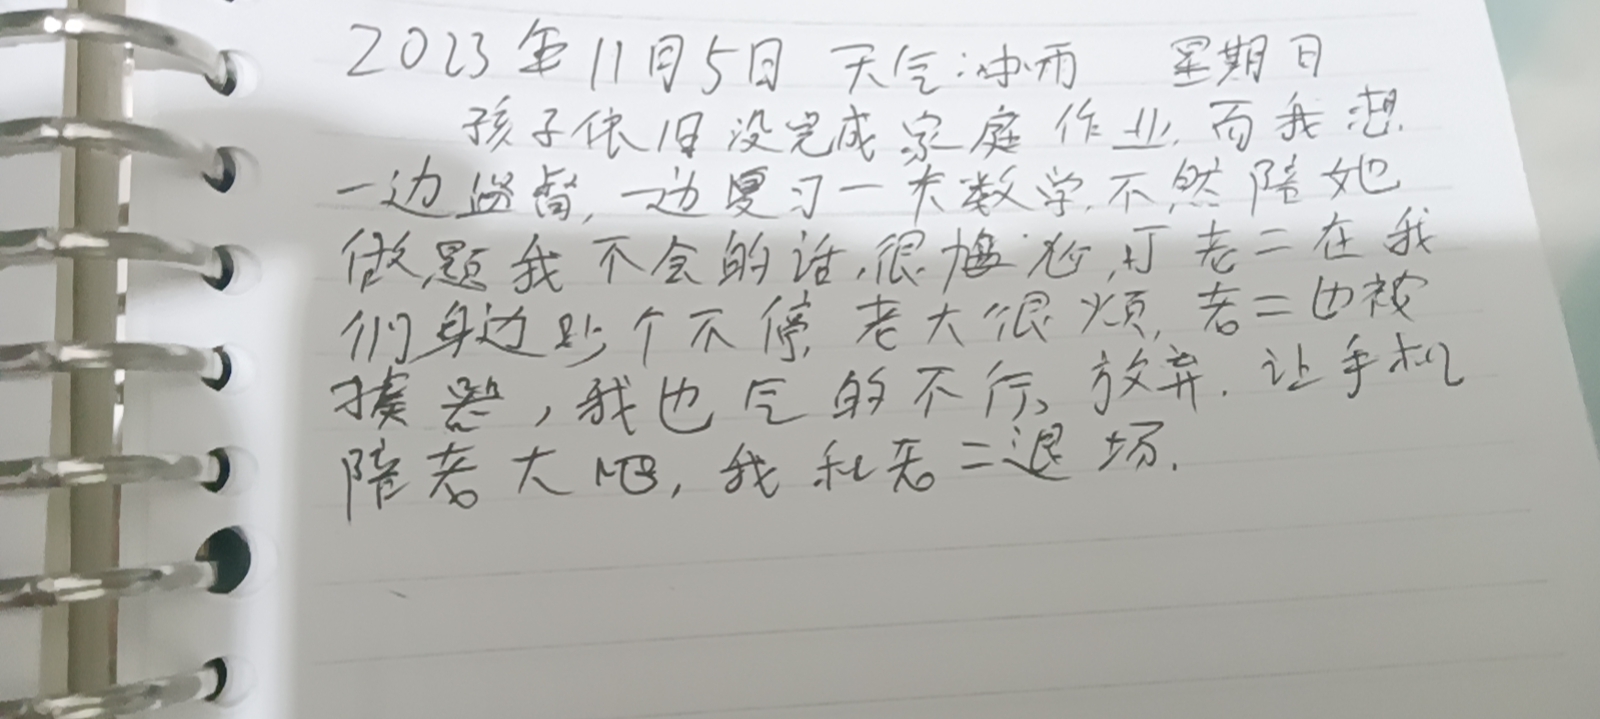 2023年11月5日 天气:冲雨 星期日
孩子依旧没完成家庭作业,而我想
一边监督,一边复习一下数学,不然陪她
做题我不会的话,很尴尬,可老二在我
们身边吵个不停,老大很烦,老二也被
揍哭,我也气的不行,放弃.让手机
陪老大吧,我和老二退场.